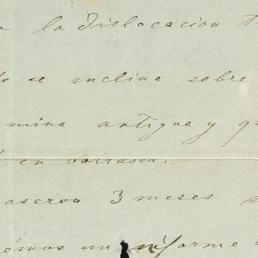 la dislocacion
se inclina sobre
mina antigua y
en borrasca.
3 meses
un informe